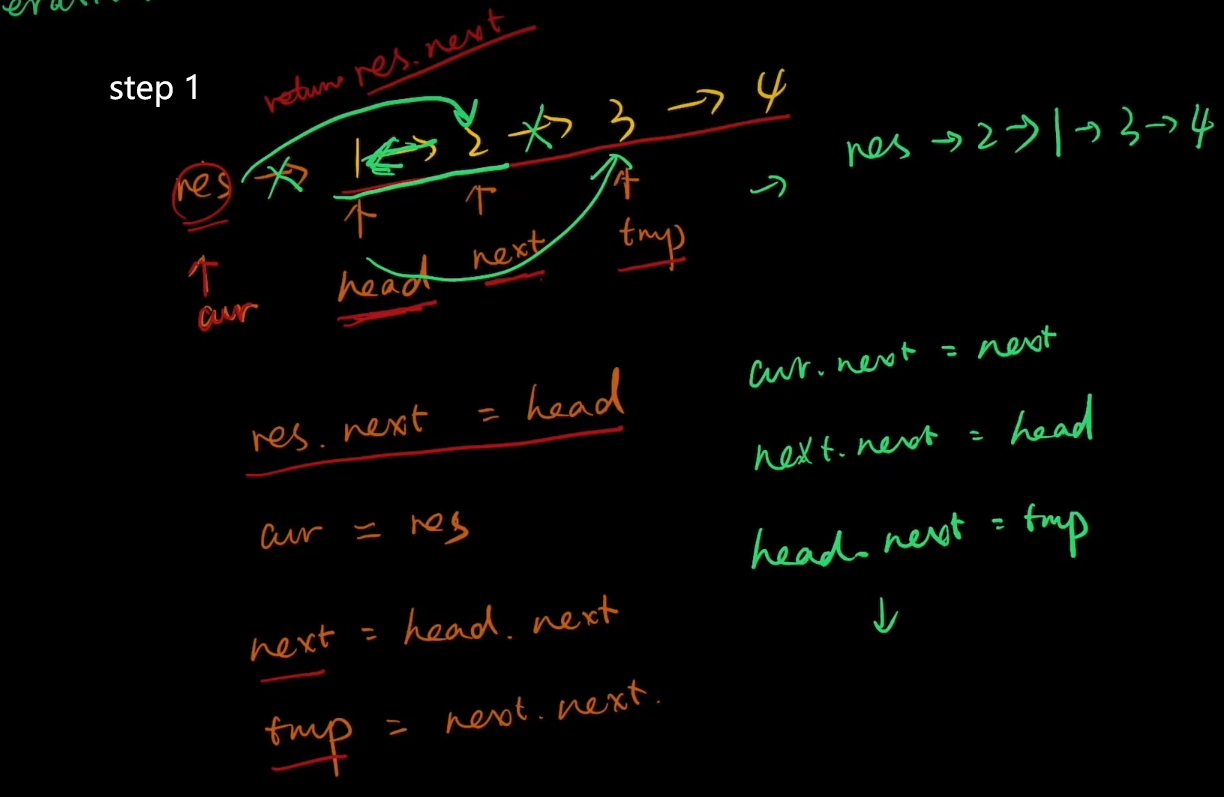 step 1
return res.next
1 → 2 → 3 → 4
res →
res → 2 → 1 → 3 → 4
→
cur
head
next
tmp
res.next = head
cur = res
next = head.next
tmp = next.next.
cur.next = next
next.next = head
head.next = tmp
↓